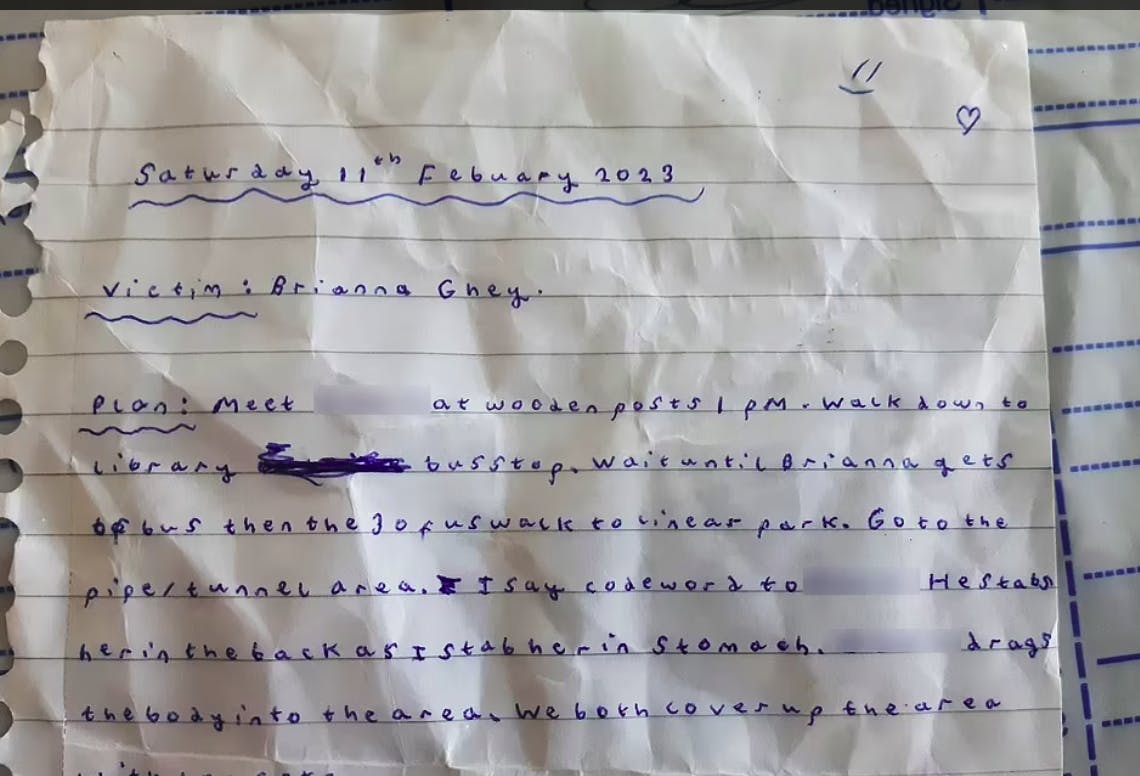 Saturday 11th Febuary 2023
Victim: Brianna Ghey.
Plan: Meet at wooden posts 1 PM. Walk down to
library bus stop. Wait until Brianna gets
of bus then the 3 of us walk to linear park. Go to the
pipe/tunnel area. I say code word to He stabs
her in the back as I stab her in stomach. drags
the body into the area. We both cover up the area